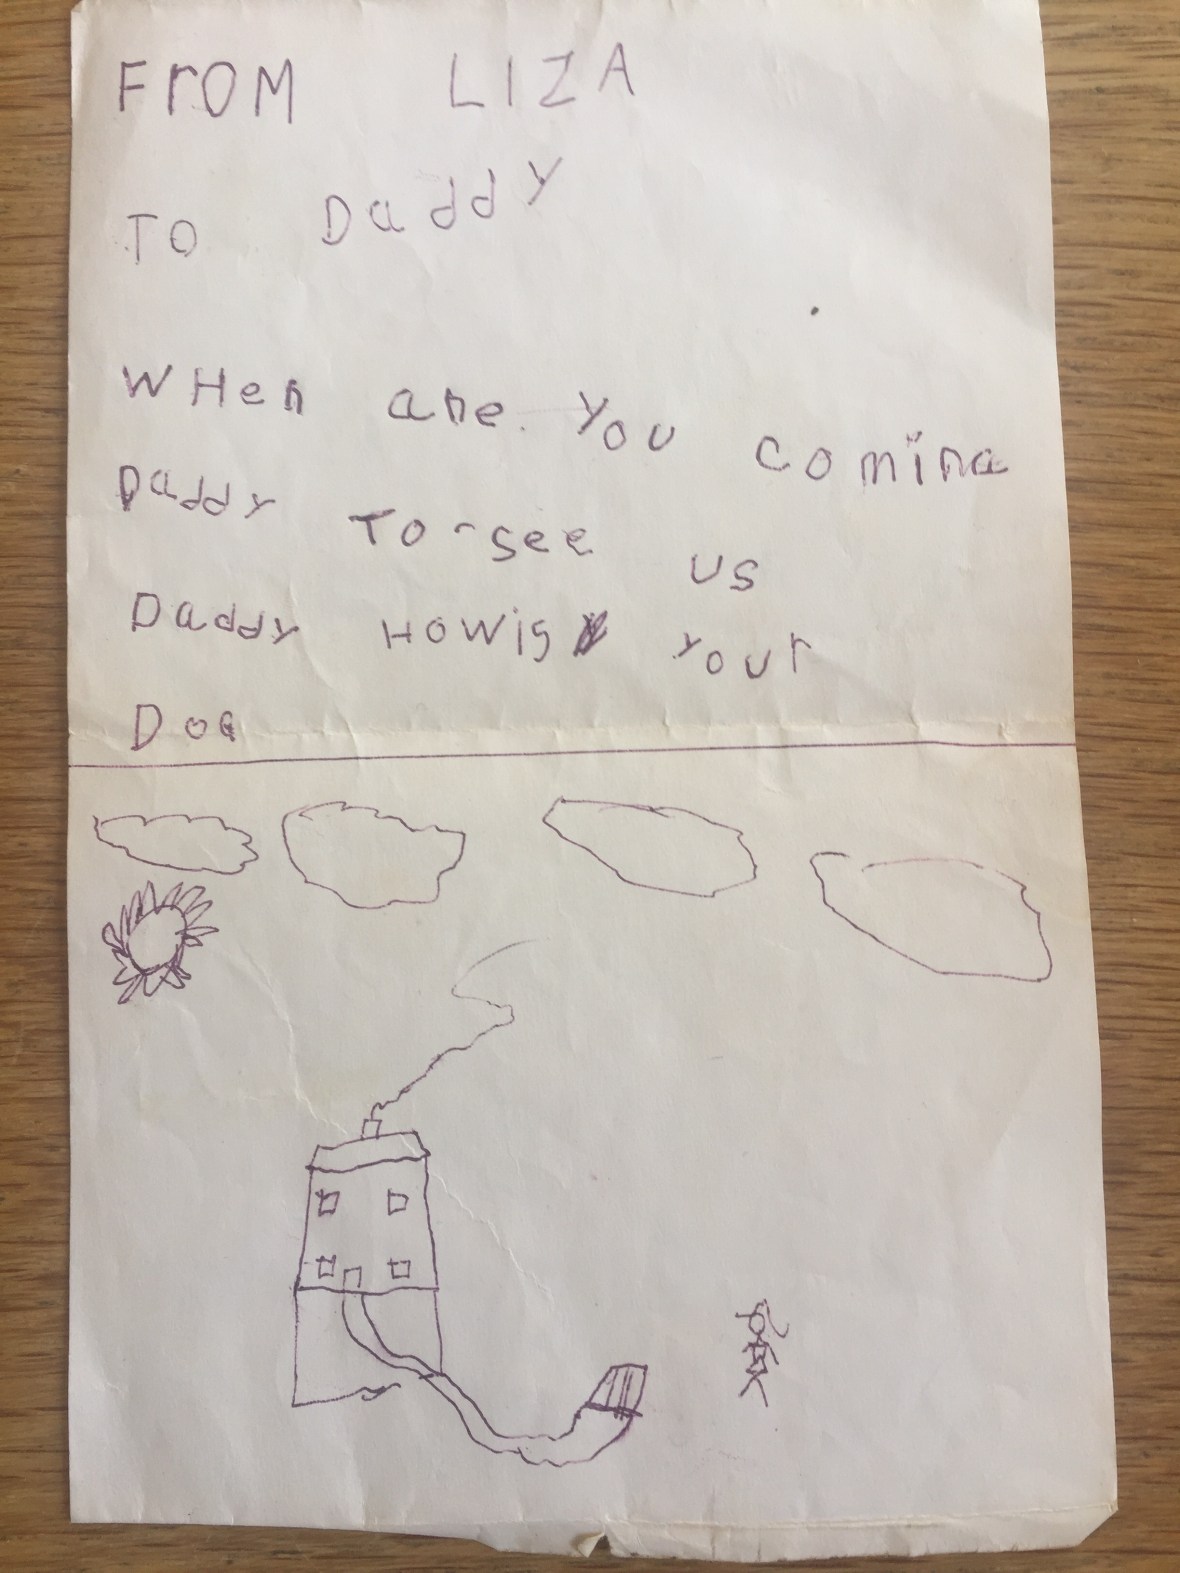 FrOM LIZA
TO Daddy
WHen are you comina
Daddy TO-see us
Daddy HOW is your
DOG